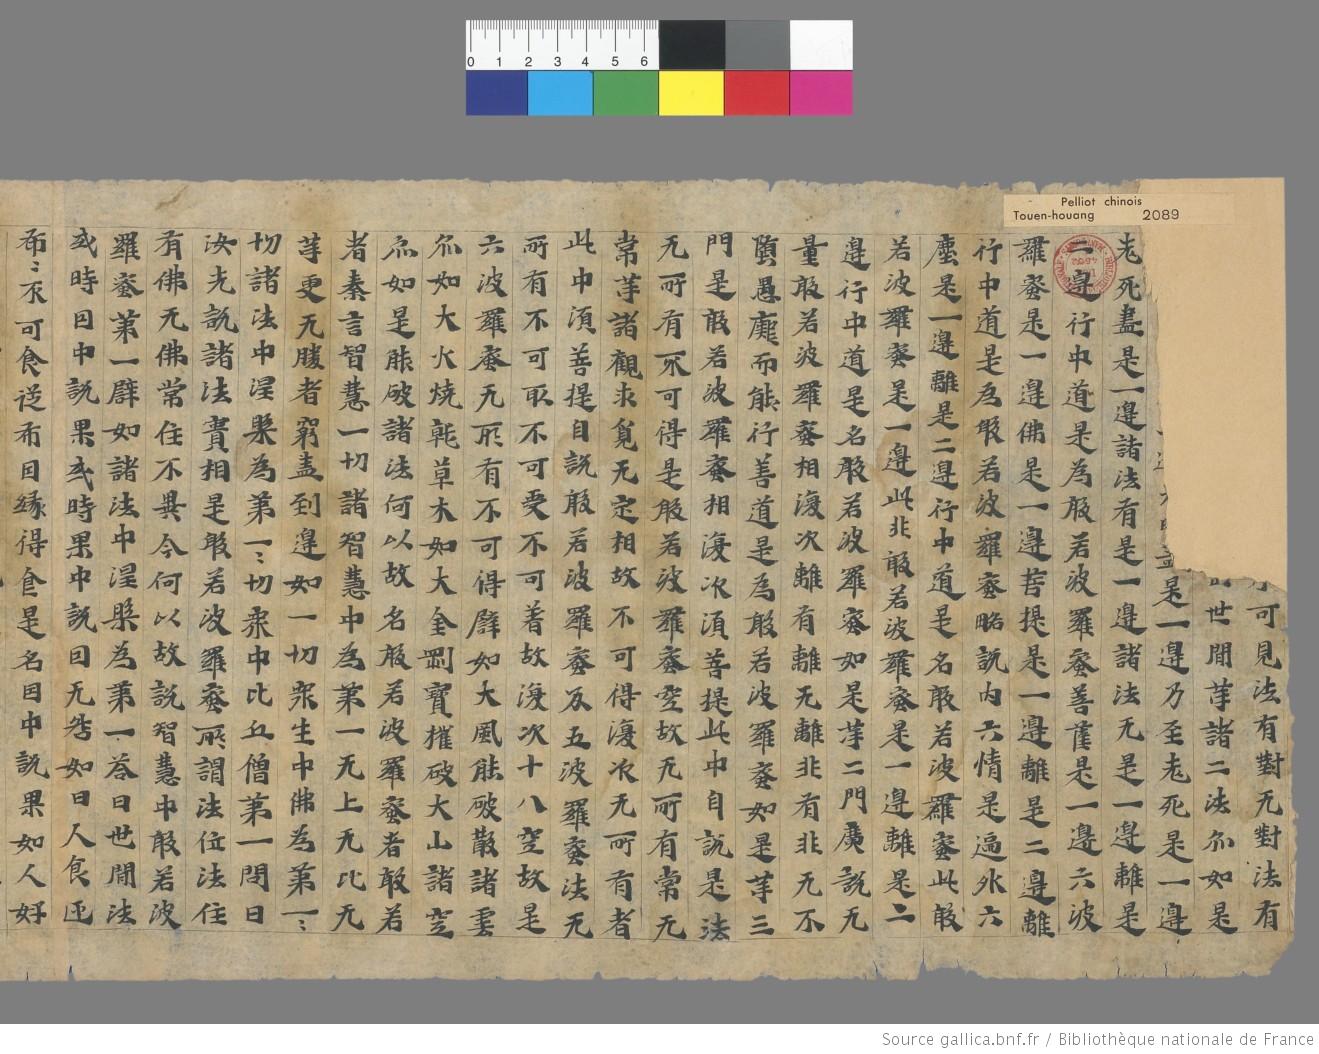 Pelliot chinois
Touen-houang 2089
0 1 2 3 4 5 6
可見法有對无對法有
世間等諸二法尒如是
是一邊乃至老死是一邊
老死盡是一邊諸法有是一邊諸法无是一邊離是
二邊行中道是為般若波羅蜜菩薩是一邊六波
羅蜜是一邊佛是一邊菩提是一邊離是二邊離
行中道是為般若波羅蜜略說內六情是遍外六
塵是一邊離是二邊行中道是名般若波羅蜜此般
若波羅蜜是一邊此非般若波羅蜜是一邊離是二
邊行中道是名般若波羅蜜如是等二門廣說无
量般若波羅蜜相復次離有離无離非有非无不
墮愚癡而能行善道是為般若波羅蜜如是等三
門是般若波羅蜜相復次須菩提此中自說是法
无所有不可得是般若波羅蜜空故无所有常无
常等諸觀求覓无定相故不可得復次无所有者
此中須菩提自說般若波羅蜜及五波羅蜜法无
所有不可取不可受不可著故復次十八空故是
六波羅蜜无所有不可得譬如大風能破散諸雲
尒如大火燒乾草木如大金剛寶摧破大山諸空
尒如是能破諸法何以故名般若波羅蜜者般若
者秦言智慧一切諸智慧中為第一无上无比无
等更无勝者窮盡到邊如一切眾生中佛為第一〻
切諸法中涅槃為第一〻切眾中比丘僧第一問曰
汝先說諸法實相是般若波羅蜜所謂法位法住
有佛无佛常住不異今何以故說智慧中般若波
羅蜜第一譬如諸法中涅槃為第一荅曰世間法
或時因中說果或時果中說因无咎如曰人食疋
布〻不可食從布因緣得食是名因中說果如人好
Source gallica.bnf.fr / Bibliothèque nationale de France